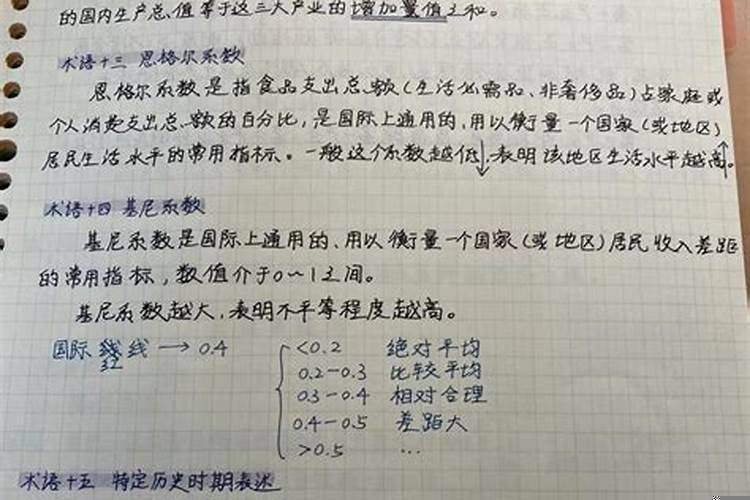 的国内生产总值等于这三大产业的增加量值之和。
术语十三 恩格尔系数
恩格尔系数是指食品支出总额(生活必需品、非奢侈品)占家庭或
个人消费支出总额的百分比,是国际上通用的,用以衡量一个国家(或地区)
居民生活水平的常用指标。一般这个系数越低↓,表明该地区生活水平越高↑。
术语十四 基尼系数
基尼系数是国际上通用的、用以衡量一个国家(或地区)居民收入差距
的常用指标,数值介于0~1之间。
基尼系数越大,表明不平等程度越高。
国际 线 → 0.4
红
<0.2 绝对平均
0.2-0.3 比较平均
0.3-0.4 相对合理
0.4-0.5 差距大
>0.5 ...
术语十五 特定历史时期表述